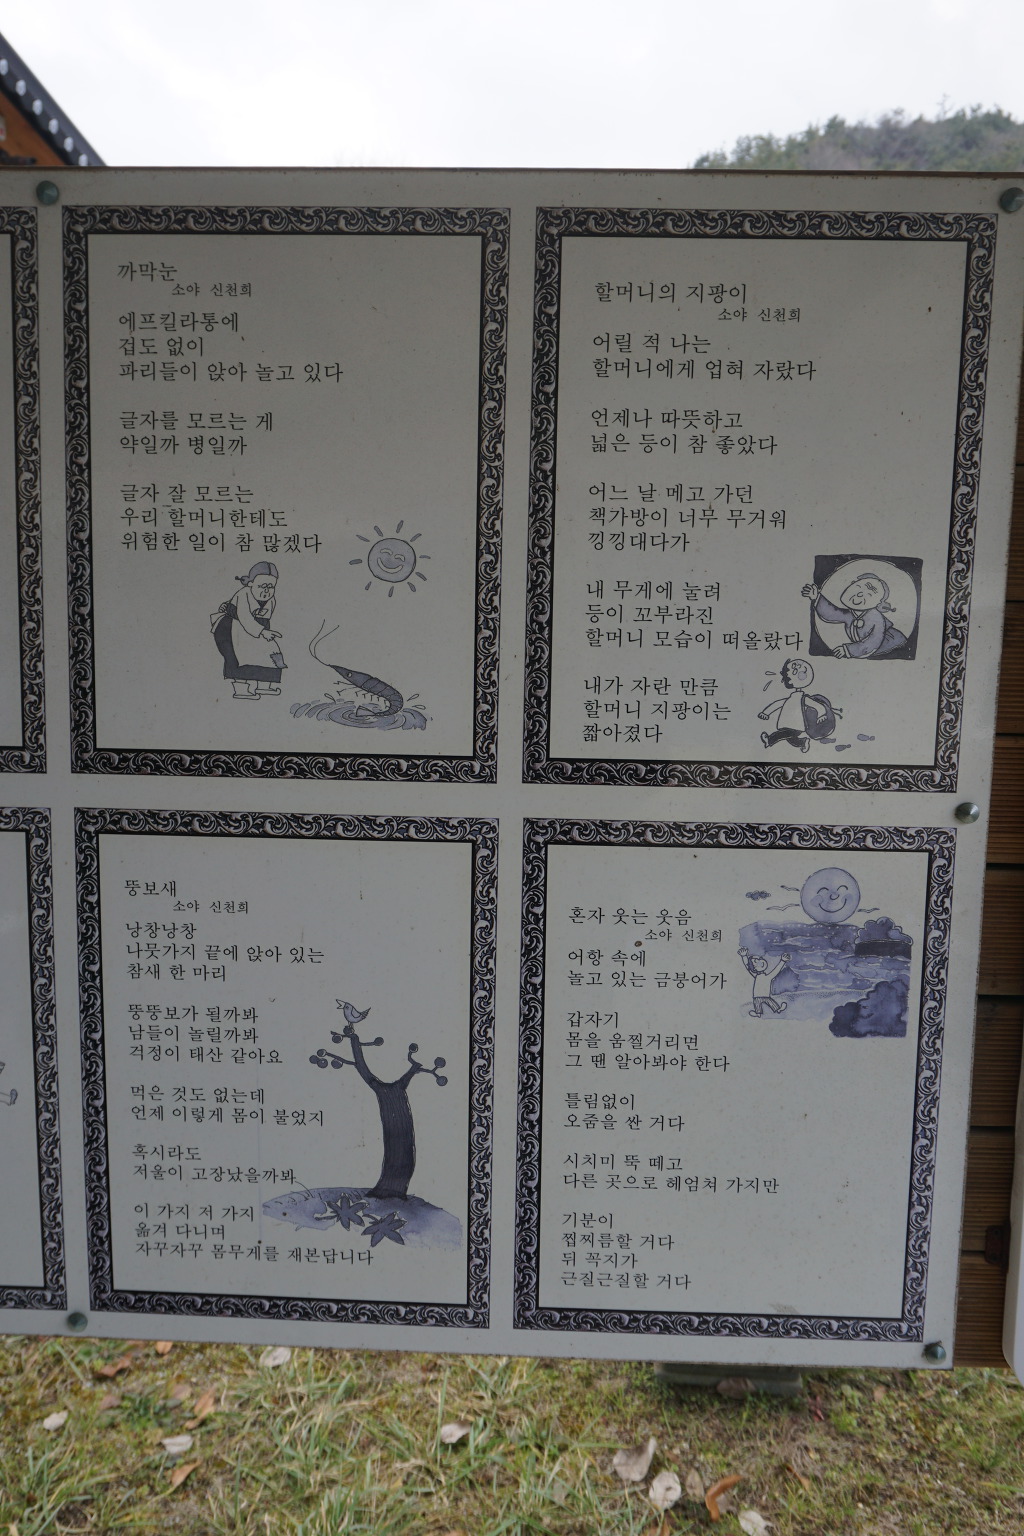 까막눈
소야 신천희
에프킬라통에
겁도 없이
파리들이 앉아 놀고 있다
글자를 모르는 게
약일까 병일까
글자 잘 모르는
우리 할머니한테도
위험한 일이 참 많겠다
할머니의 지팡이
소야 신천희
어릴 적 나는
할머니에게 업혀 자랐다
언제나 따뜻하고
넓은 등이 참 좋았다
어느 날 메고 가던
책가방이 너무 무거워
낑낑대다가
내 무게에 눌려
등이 꼬부라진
할머니 모습이 떠올랐다
내가 자란 만큼
할머니 지팡이는
짧아졌다
뚱보새
소야 신천희
낭창낭창
나뭇가지 끝에 앉아 있는
참새 한 마리
뚱뚱보가 될까봐
남들이 놀릴까봐
걱정이 태산 같아요
먹은 것도 없는데
언제 이렇게 몸이 불었지
혹시라도
저울이 고장났을까봐
이 가지 저 가지
옮겨 다니며
자꾸자꾸 몸무게를 재본답니다
혼자 웃는 웃음
소야 신천희
어항 속에
놀고 있는 금붕어가
갑자기
몸을 움찔거리면
그 땐 알아봐야 한다
틀림없이
오줌을 싼 거다
시치미 뚝 떼고
다른 곳으로 헤엄쳐 가지만
기분이
찝찌름할 거다
뒤 꼭지가
근질근질할 거다